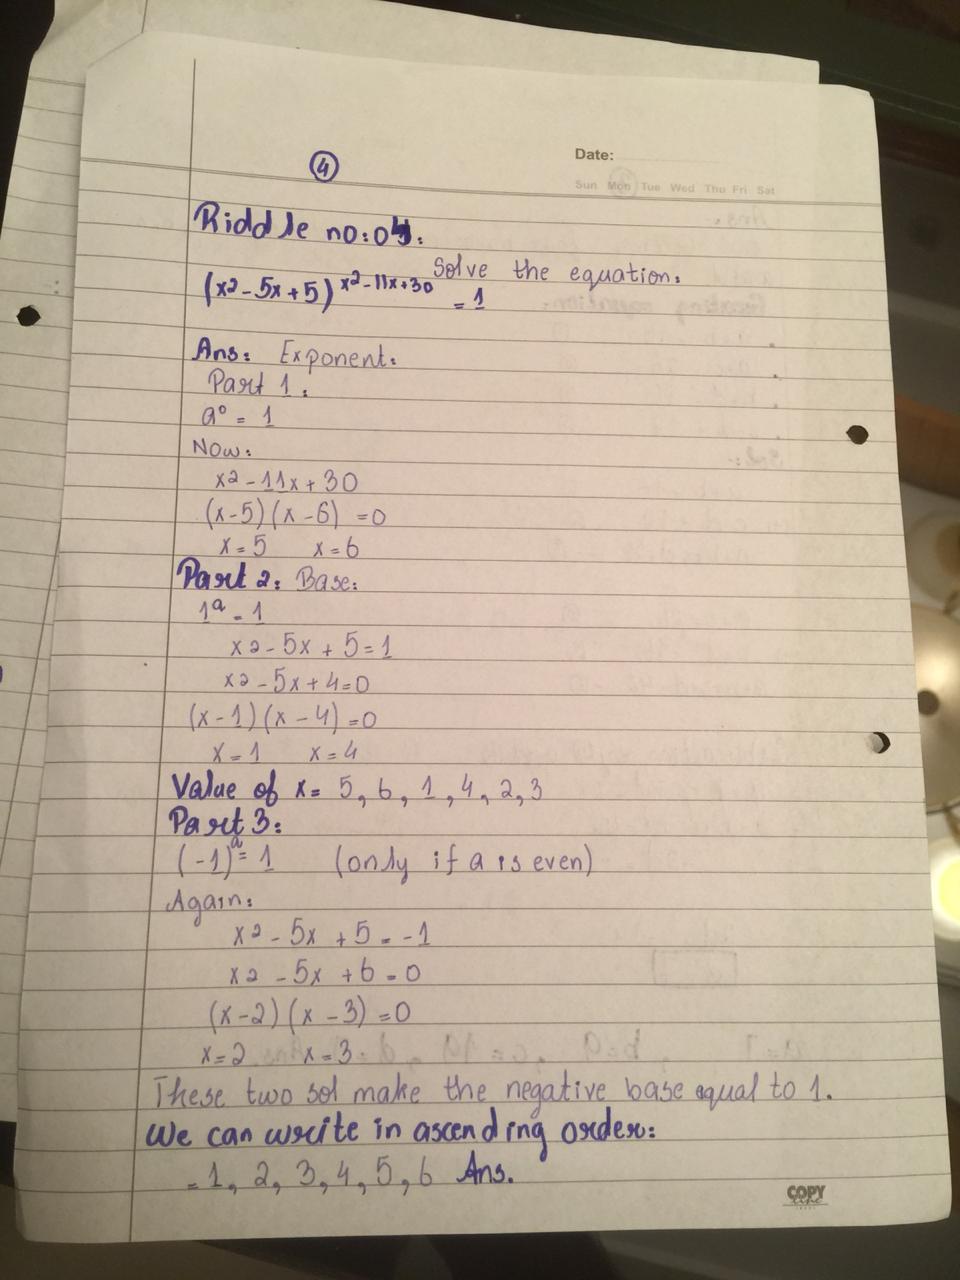 4
Date:
Sun Mon Tue Wed Thu Fri Sat
Riddle no:04:
Solve the equation.
(x2-5x+5)^x2-11x+30 = 1
Ans: Exponent.
Part 1:
a⁰ = 1
Now:
x2-11x+30
(x-5)(x-6) =0
x=5 x=6
Part 2: Base:
1ᵃ = 1
x2-5x+5=1
x2-5x+4=0
(x-1)(x-4)=0
x=1 x=4
Value of x= 5, 6, 1, 4, 2, 3
Part 3:
(-1)ᵃ = 1 (only if a is even)
Again:
x2-5x+5=-1
x2-5x+6=0
(x-2)(x-3)=0
x=2 x=3
These two sol make the negative base equal to 1.
We can write in ascending order:
= 1, 2, 3, 4, 5, 6 Ans.
COPY